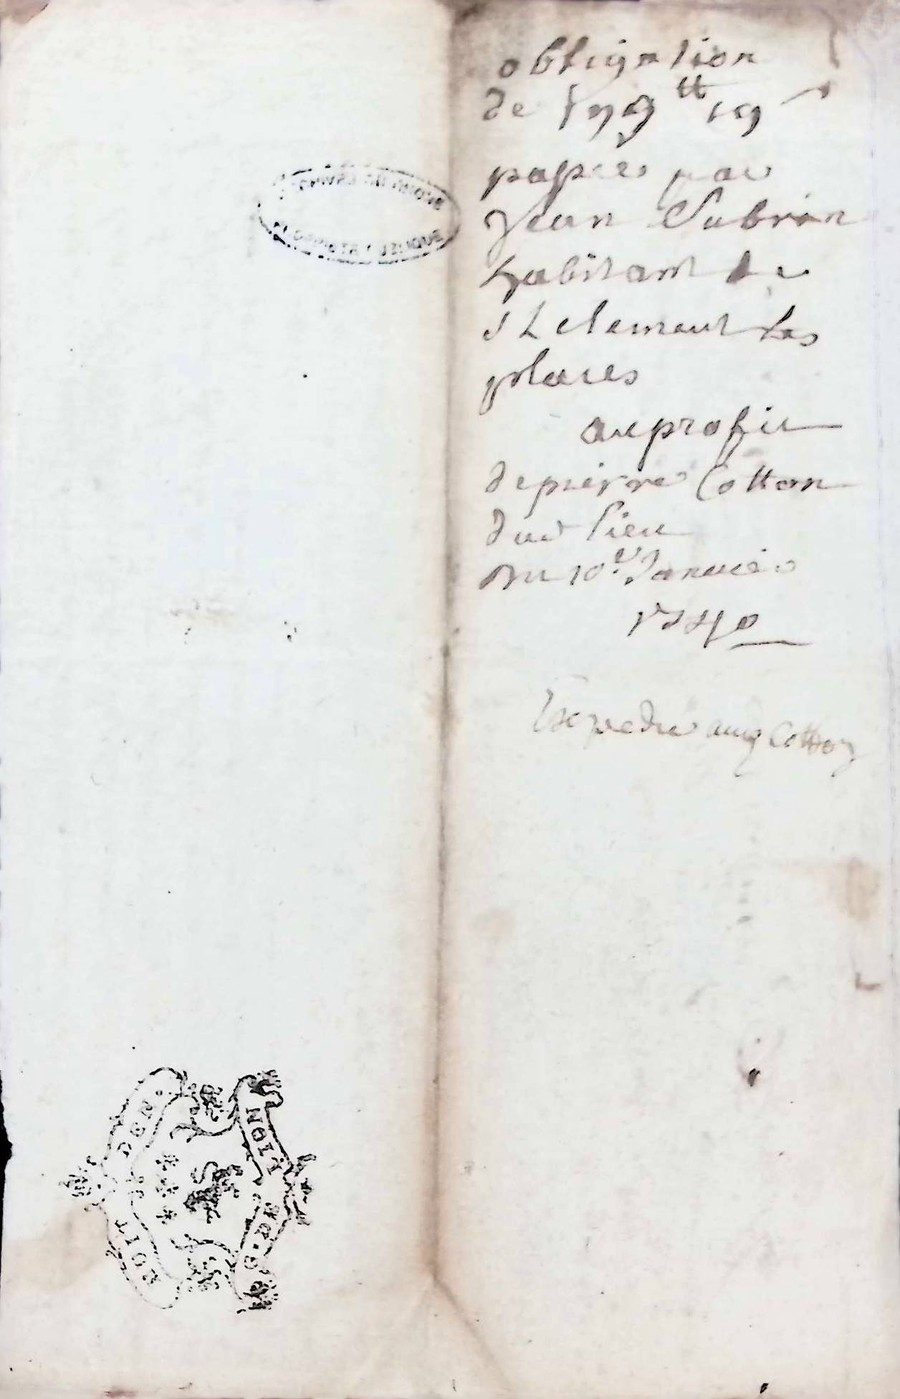 obligation
de
passée par
Jean Subrin
habitant de
st Clement les
places
au profit
de pierre Cotton
dud lieu
Du 10e Janvier
1740
Expedié aud Cotton